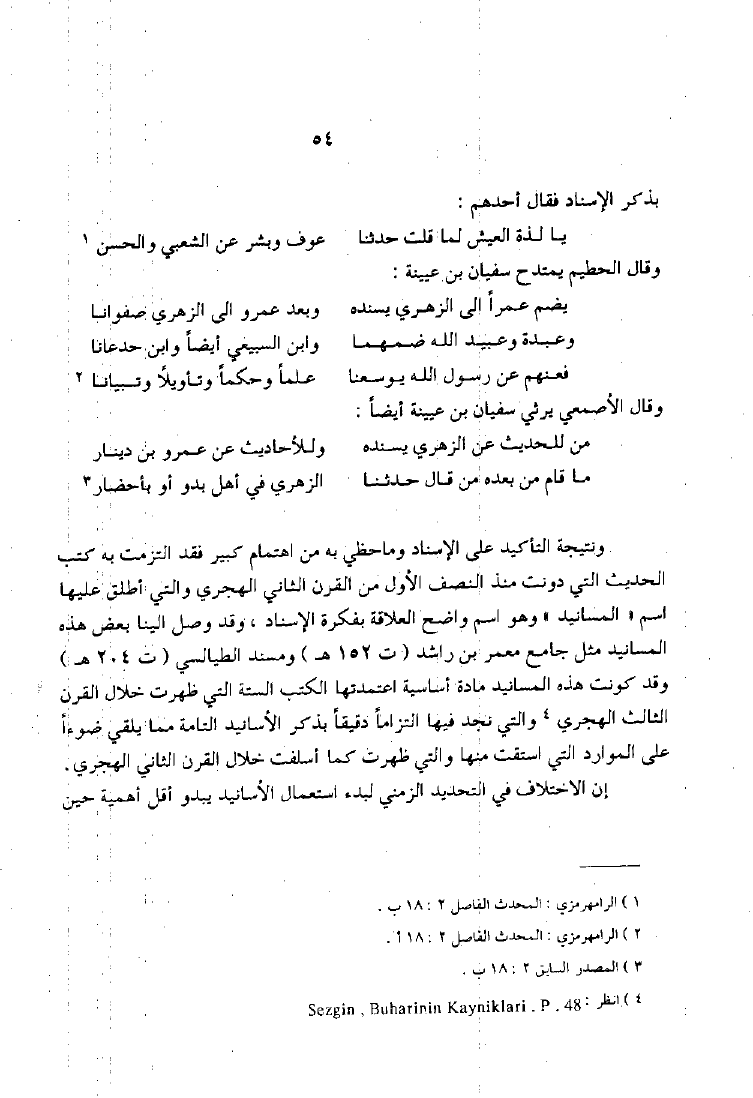 ٥٤
بذكر الإسناد فقال أحدهم :
يا لذة العيش لما قلت حدثنا عوف وبشر عن الشعبي والحسن ١
وقال الحطيم يمتدح سفيان بن عيينة :
يضم عمراً الى الزهري يسنده وبعد عمرو الى الزهري صفوانا
وعبدة وعبيد الله ضمهما وابن السبيعي أيضاً وابن جدعانا
فعنهم عن رسول الله يوسعنا علماً وحكماً وتأويلاً وتبيانا ٢
وقال الأصمعي يرثي سفيان بن عيينة أيضاً :
من للحديث عن الزهري يسنده وللأحاديث عن عمرو بن دينار
ما قام من بعده من قال حدثنا الزهري في أهل بدو أو بأحضار ٣
ونتيجة التأكيد على الإسناد وماحظي به من اهتمام كبير فقد التزمت به كتب
الحديث التي دونت منذ النصف الأول من القرن الثاني الهجري والتي أطلق عليها
اسم « المسانيد » وهو اسم واضح العلاقة بفكرة الإسناد ، وقد وصل الينا بعض هذه
المسانيد مثل جامع معمر بن راشد ( ت ١٥٢ هـ ) ومسند الطيالسي ( ت ٢٠٤ هـ )
وقد كونت هذه المسانيد مادة أساسية اعتمدتها الكتب الستة التي ظهرت خلال القرن
الثالث الهجري ٤ والتي نجد فيها التزاماً دقيقاً بذكر الأسانيد التامة مما يلقي ضوءاً
على الموارد التي استقت منها والتي ظهرت كما أسلفت خلال القرن الثاني الهجري .
إن الاختلاف في التحديد الزمني لبدء استعمال الأسانيد يبدو أقل أهمية حين
١ ) الرامهرمزي : المحدث الفاصل ٢ : ١٨ ب .
٢ ) الرامهرمزي : المحدث الفاصل ٢ : ١٨ أ .
٣ ) المصدر السابق ٢ : ١٨ ب .
٤ ) انظر : Sezgin , Buharinin Kayniklari . P . 48